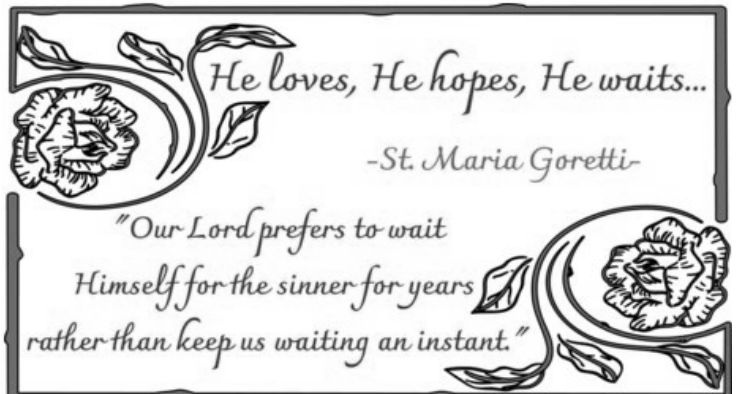 He loves, He hopes, He waits...
-St. Maria Goretti-
"Our Lord prefers to wait
Himself for the sinner for years
rather than keep us waiting an instant."